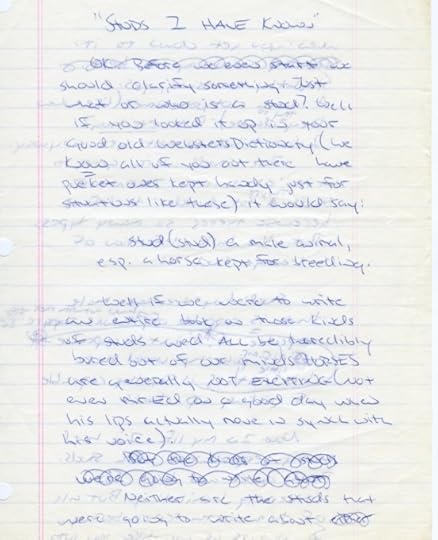 "STUDS I HAVE KNOWN"
OK. Before we even start we
should clarify something. Just
what or who is a stud? Well
if you looked it up in your
good old Websters Dictionary (we
know all of you out there have
pocket ones kept handy just for
situations like these) it would say:
stud (stud) a male animal,
esp. a horse kept for breeding.
Well if we were to write
an entire book on those kinds
of studs we'd ALL be incredibly
bored out of our minds. HORSES
are generally NOT EXCITING (not
even MR. ED on a good day when
his lips actually move in synch with
his voice).
Neither are the studs that
we're going to write about